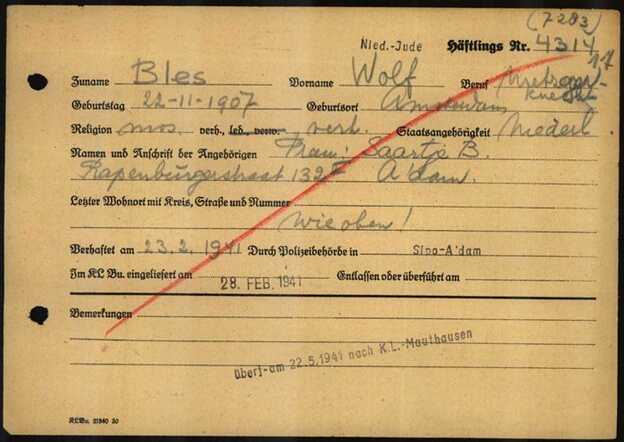 (7283)
Nied.-Jude Häftlings Nr. 4314
17
Zuname Bles Vorname Wolf Beruf Metzger-
knecht
Geburtstag 22-11-1907 Geburtsort Amsterdam
Religion mos. verh., led., verw. verh. Staatsangehörigkeit Niederl.
Namen und Anschrift der Angehörigen Frau: Saartje B.
Rapenburgerstraat 132 I A'dam.
Letzter Wohnort mit Kreis, Straße und Nummer
wie oben!
Verhaftet am 23.2.1941 Durch Polizeibehörde in Sipo-A'dam
Im KL Bu. eingeliefert am 28. FEB. 1941 Entlassen oder überführt am
Bemerkungen
überf.am 22.5.1941 nach K.L.-Mauthausen
KLBu. 21940 30